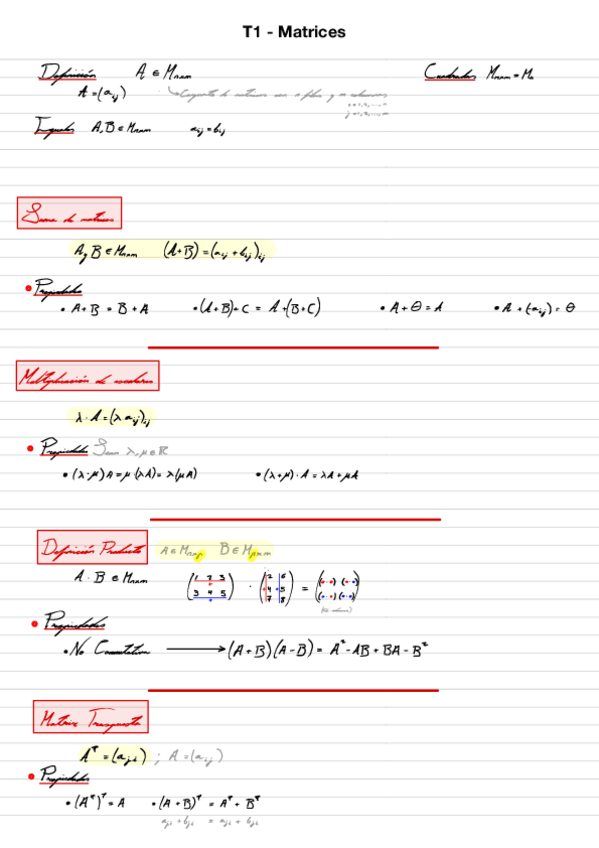 T1 - Matrices
Definición A ∈ Mnxm Cuadradas Mnxn = Mn
A = (aij) Conjunto de matrices con n filas y m columnas
Iguales A, B ∈ Mnxm aij = bij
Suma de matrices
A y B ∈ Mnxm (A+B) = (aij + bij)ij
• Propiedades
• A + B = B + A • (A+B)+C = A+(B+C) • A + Θ = A • A + (-aij) = Θ
Multiplicación de escalares
λ · A = (λ aij)ij
• Propiedades Sean λ, μ ∈ ℝ
• (λ·μ)A = μ(λA) = λ(μA) • (λ+μ)·A = λA + μA
Definición Producto A ∈ Mnxp B ∈ Mpxm
A · B ∈ Mnxm (1 2 3 · (2 6 =
3 4 5) 4 5
7 8)
• Propiedades
• No Conmutativa ⟶ (A+B)(A-B) = A² - AB + BA - B²
Matriz Traspuesta
Aᵀ = (aji) ; A = (aij)
• Propiedades
• (Aᵀ)ᵀ = A • (A + B)ᵀ = Aᵀ + Bᵀ
aji + bji = aji + bji